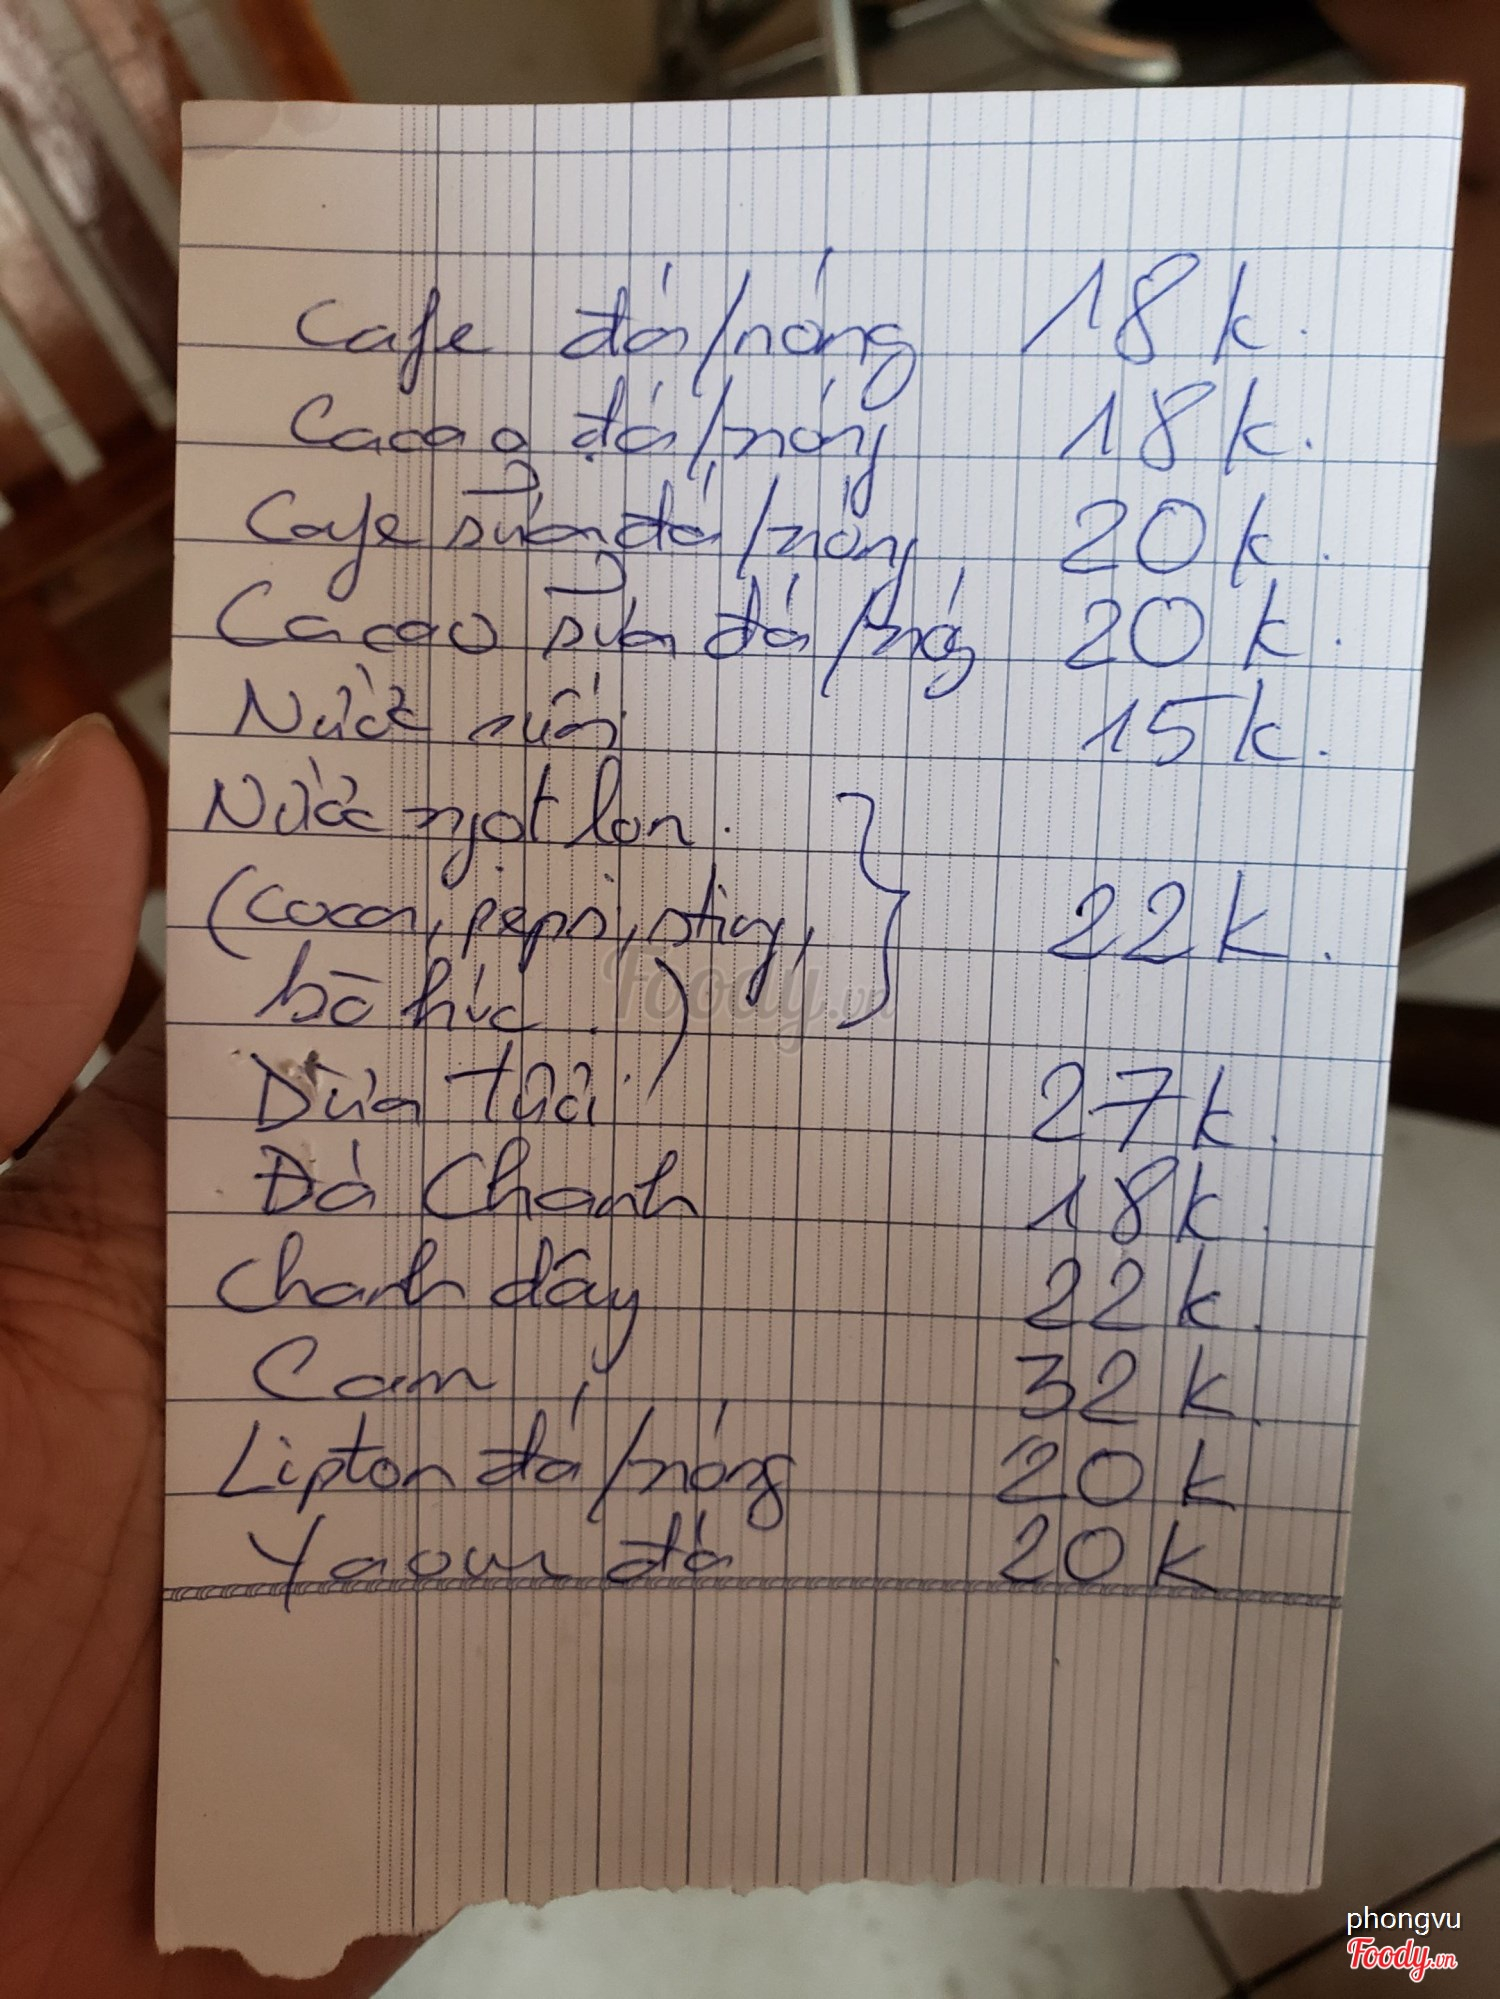 Cafe đá/nóng 18k.
Cacao đá/nóng 18k.
Cafe sữa đá/nóng 20k.
Cacao sữa đá/nóng 20k.
Nước suối 15k.
Nước ngọt lon.
(coca, pepsi, sting, 22k.
bò húc.)
Dừa tươi 27k.
Đá Chanh 18k.
Chanh dây 22k.
Cam 32k.
Lipton đá/nóng 20k
Yaour đá 20k
Foody.vn
phongvu
Foody.vn